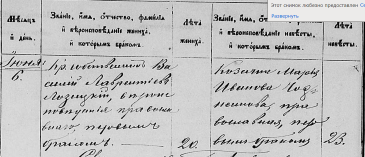 Этот снимок любезно предоставлен
Развернуть
Мѣсяцъ
и день.
Званіе, имя, отчество, фамилія
и вѣроисповѣданіе жениха,
и которымъ бракомъ.
Лѣта
жениха.
Званіе, имя, отчество, фамилія
и вѣроисповѣданіе невѣсты,
и которымъ бракомъ.
Лѣта
невѣсты.
Іюнь
6.
Ва-
силій Лаврентіевъ
православ-
наго, первымъ
бракомъ.
20.
Марія
Иванова
пра-
вославная, пер-
вымъ бракомъ
23.